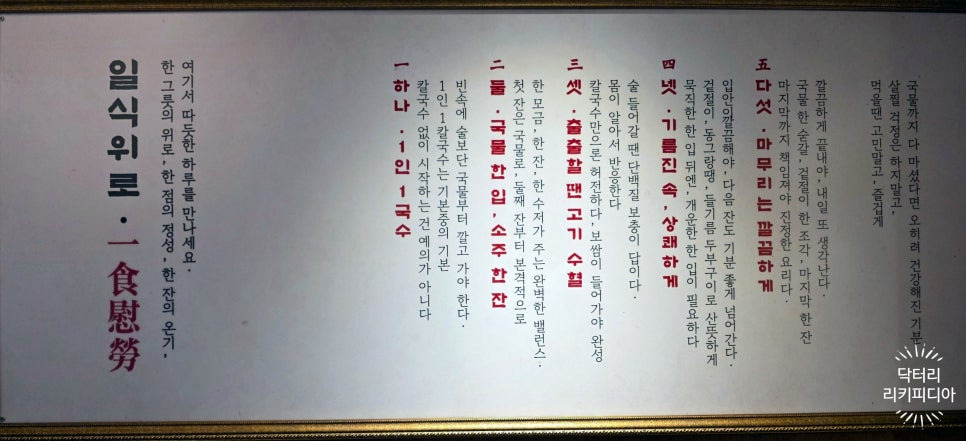 일식위로 · 一食慰勞
한 그릇의 위로, 한 점의 정성, 한 잔의 온기,
여기서 따듯한 하루를 만나세요.
一 하나 · 1인 1국수
칼국수 없이 시작하는건 예의가 아니다
1인 1칼국수는 기본중의 기본
빈속에 술보단 국물부터 깔고 가야 한다.
二 둘 · 국물 한 입, 소주 한 잔
첫 잔은 국물로, 둘째 잔부터 본격적으로
한 모금, 한 잔, 한 수저가 주는 완벽한 밸런스.
三 셋 · 출출할 땐 고기 수혈
칼국수만으론 허전하다, 보쌈이 들어가야 완성
몸이 알아서 반응한다
술 들어갈 땐 단백질 보충이 답이다.
四 넷 · 기름진 속, 상쾌하게
묵직한 한 입 뒤엔, 개운한 한 입이 필요하다
겉절이, 동그랑땡, 들기름 두부구이로 산뜻하게
입안이 깔끔해야, 다음 잔도 기분 좋게 넘어간다.
五 다섯 · 마무리는 깔끔하게
마지막까지 책임져야 진정한 요리다.
국물 한 숟갈, 겉절이 한 조각, 마지막 한 잔
깔끔하게 끝내야, 내일 또 생각난다.
먹을땐 고민말고, 즐겁게
살찔 걱정은 하지말고,
국물까지 다 마셨다면 오히려 건강해진 기분
닥터리
리키피디아